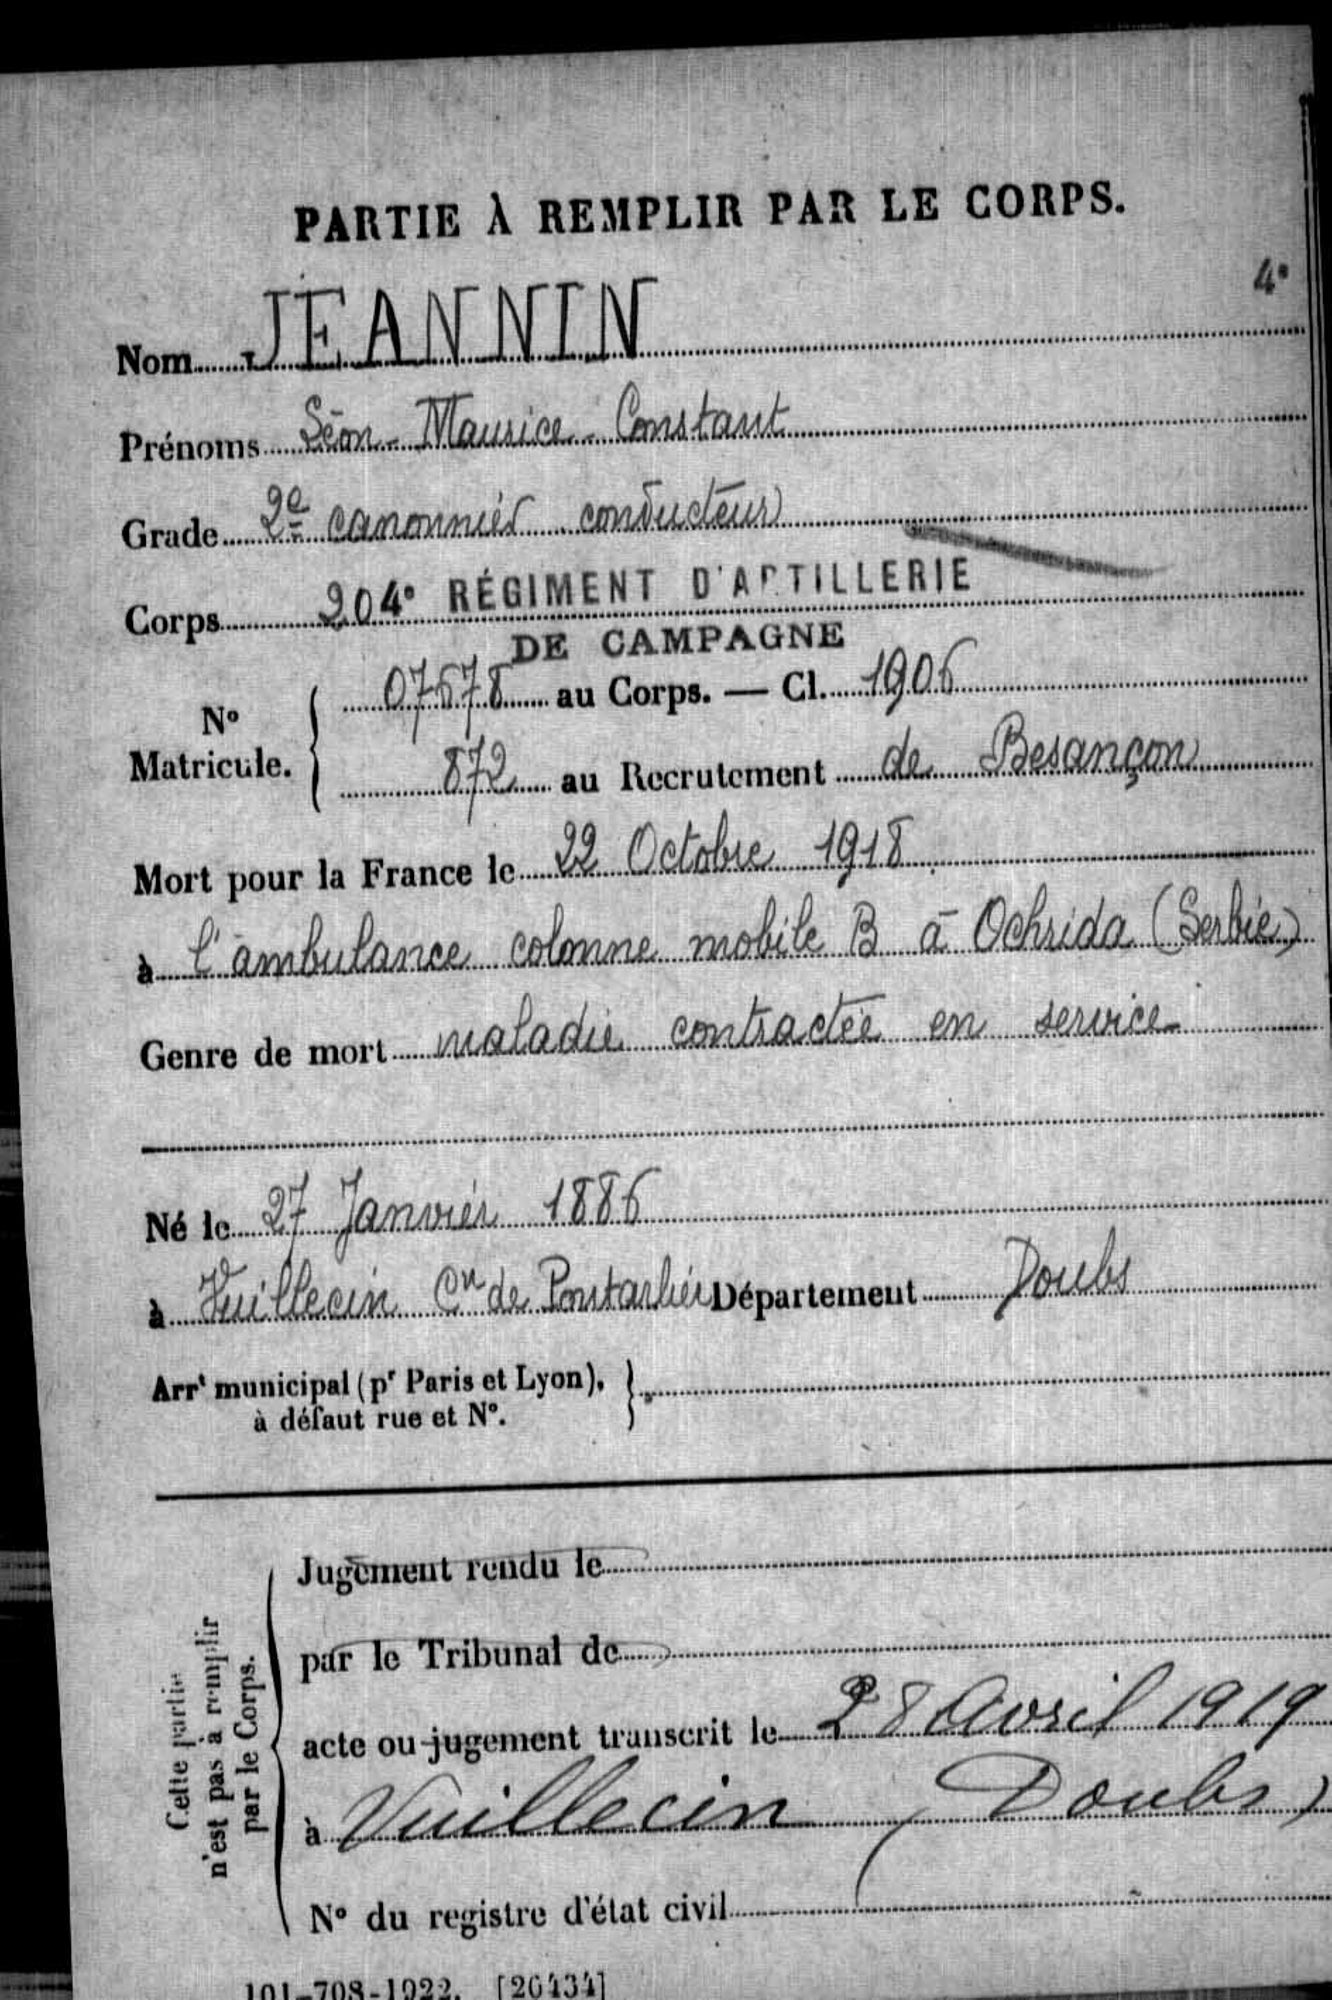 PARTIE À REMPLIR PAR LE CORPS.
4e
Nom JEANNIN
Prénoms Léon - Maurice - Constant
Grade 2e canonnier conducteur
Corps 204e RÉGIMENT D'ARTILLERIE
DE CAMPAGNE
07678 au Corps. — Cl. 1906
No
Matricule.
872 au Recrutement de Besançon
Mort pour la France le 22 Octobre 1918
à l'ambulance colonne mobile B à Ochrida (Serbie)
Genre de mort maladie contractée en service
Né le 27 Janvier 1886
à Vuillecin Con de Pontarlier Département Doubs
Arrt municipal (pr Paris et Lyon),
à défaut rue et No.
Jugement rendu le
par le Tribunal de
acte ou jugement transcrit le 28 Avril 1919
à Vuillecin (Doubs)
No du registre d'état civil
Cette partie
n'est pas à remplir
par le Corps.
101-708-1922. [26434]